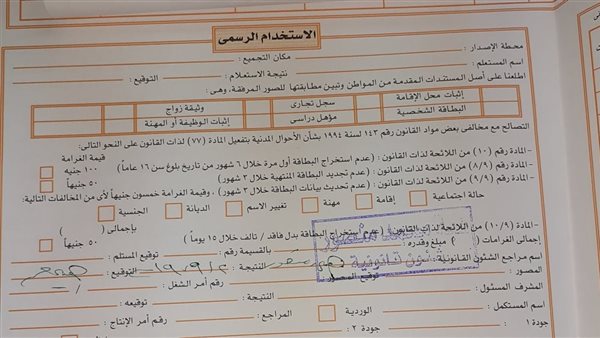 الاستخدام الرسمى
محطة الإصدار: مكان التجميع:
اسم المستعلم: نتيجة الاستعلام: التوقيع:
اطلعنا على أصل المستندات المقدمة من المواطن وتبين مطابقتها للصور المرفقة، وهى:
إثبات محل الإقامة سجل تجارى وثيقة زواج
البطاقة الشخصية مؤهل دراسى إثبات الوظيفة أو المهنة
التصالح مع مخالفى بعض مواد القانون رقم ١٤٣ لسنة ١٩٩٤ بشأن الأحوال المدنية بتفعيل المادة (٧٧) لذات القانون على النحو التالى:
قيمة الغرامة
-المادة رقم (١٠) من اللائحة لذات القانون : (عدم استخراج البطاقة أول مرة خلال ٦ شهور من تاريخ بلوغ سن ١٦ عاماً) ١٠٠ جنيه
-المادة رقم (٨/٩) من اللائحة لذات القانون : (عدم تجديد البطاقة المنتهية خلال ٣ شهور) ٥٠ جنيهاً
-المادة رقم (٩/٩) من اللائحة لذات القانون : (عدم تحديث بيانات البطاقة خلال ٣ شهور) ، وقيمة الغرامة خمسون جنيهاً لأى من المخالفات التالية:
حالة اجتماعية إقامة مهنة تغيير الاسم الديانة الجنسية
بإجمالى ( )
-المادة رقم (١٠/٩) من اللائحة لذات القانون : (عدم استخراج البطاقة بدل فاقد / تالف خلال ١٥ يوماً) ٥٠ جنيهاً
إجمالى الغرامات ( ) مبلغ وقدره : بالقسيمة رقم : توقيع المستلم :
اسم مراجع الشئون القانونية : شئون قانونية النتيجة : التوقيع :
المصور : توقيع المصور : رقم أمر الشغل :
المشرف المسئول : النتيجة : توقيعه :
اسم المستكمل : الوردية : المراجع : رقم أمر الإنتاج :
جودة ١ : جودة ٢ :